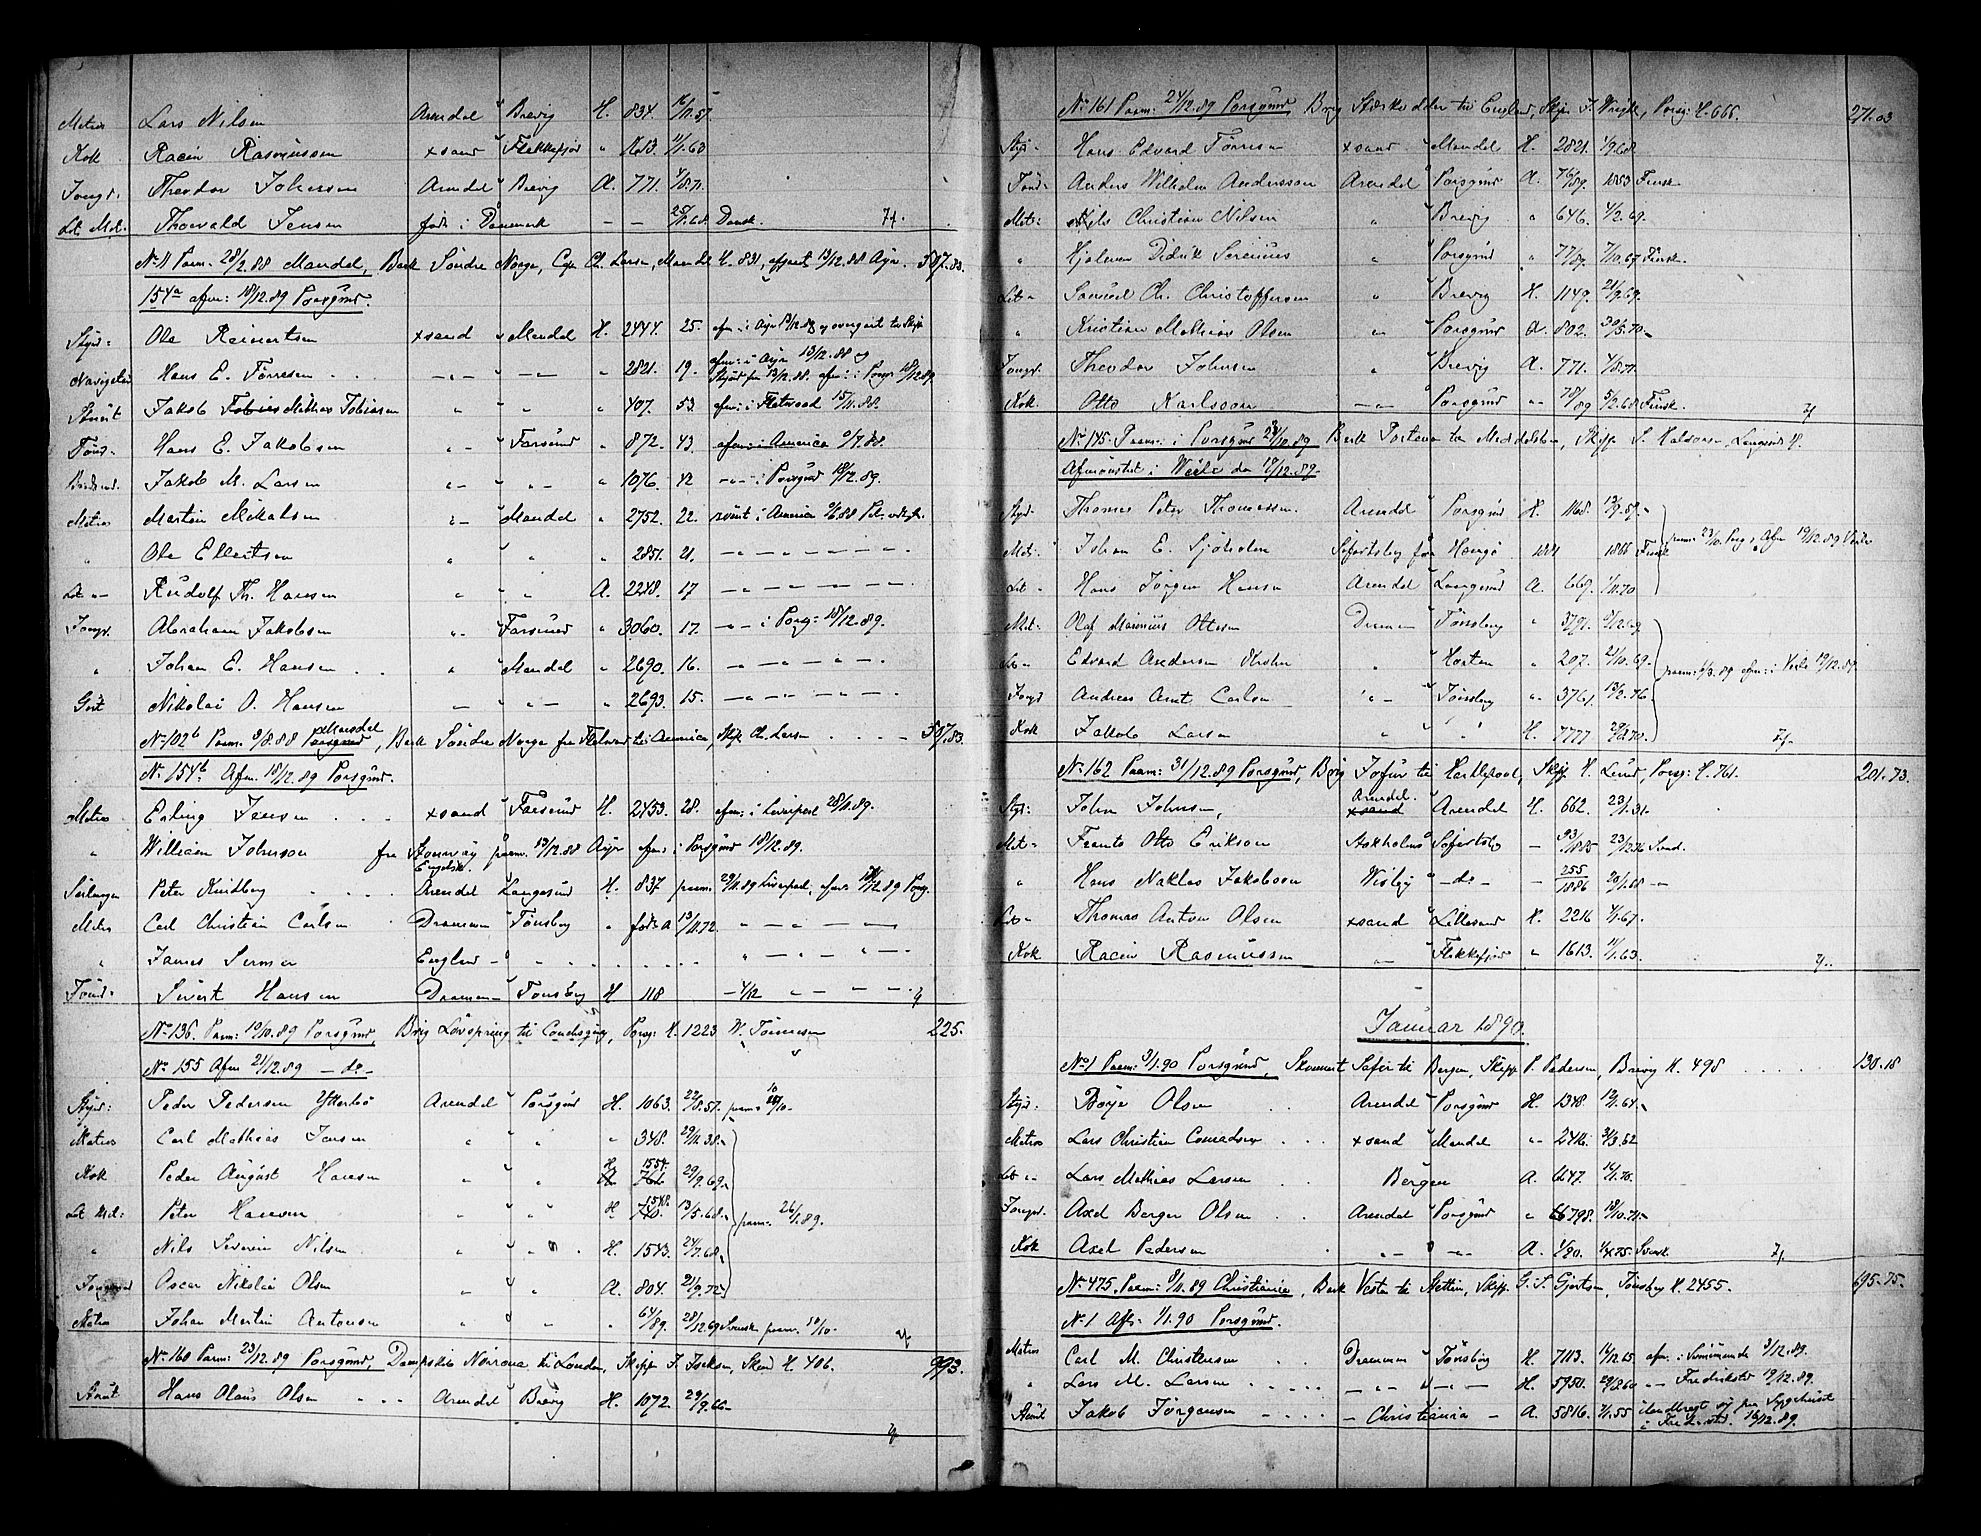 Matros Lars Nilsen Arendal Brevig H. 834. 16/11.57.
Kok Racin Rasmussen xsand Flekkefjor " 1613. 11/1.63
Jongr. Theodor Johnsen Arendal Brevig A. 771. 4/8.71.
Let. Mat. Thorvald Jensen født i Danmark — — 25/11.68. Dansk.
No 11 Paam: 28/2.88 Mandal, Bark Søndre Norge, Cpt Ch. Larsen, Mandal H. 831, 13/12.88 Ayr. 587.83.
154a afm: 18/12.89 Porsgrund.
Styrd: Ole Reinertsen xsand Mandal H. 2444. 25. afm: i Ayr 13/12.88 og overgaaet til Skip
Hans E. Tørresen — " — 2821. 19. afm: i Ayr 13/12.88 og
Styrd fra 13/12.88. afm: i Pors 18/12.89.
Stuert Jakob Mathias Tobiasen " " " 407. 53. afm: i Fleetwood 15/11.88.
Tømd- Hans E. Jakobsen " - Farsund " 872. 43. afm: i America 9/7.88.
Jakob M. Larsen " - " - " 1076. 42 — " — i Porsgrund 18/12.89.
Matros Martin Mikalsen " - Mandal " 2752. 22. rømt i America
" Ole Ellertsen " " 2851. 21. — " — " — " —
Let "- Rudolf Th. Hansen " " A. 2248. 17 — " — " — " —
Jongr. Abraham Jakobsen " . Farsund " 3060. 17. — " — i Porsg: 18/12.89.
" Johan E. Hansen . . " Mandal " 2690. 16. — " — " — " —
Gut Nikolai O. Hansen — " — " 2693. 15. — " — " — " —
No 102b Paam. 9/8.88 Mandal, Bark Søndre Norge fra Fleetwood til America, Skip Ch. Larsen . . . . 587.83.
No 154b Afm. 18/12.89 Porsgrund.
Matros Erling Jensen . . . xsand Farsund H. 2453. 28. afm: i Liverpool 28/11.89.
" William Johnson fra Stornway paam. 13/12.88 Ayr afm: i Porsgrund 18/12.89.
Engelsk.
Peter Kindberg . . . . Arendal Langesund H. 837 paam. 29/11.89 Liverpool, afm: 18/12.89 Porsg.
Matros Carl Christian Carlsen Drammen Tønsberg " født A 13/11.72. " — " — " —
" James England - " . . . . . . . " — " — " —
Tømd- Sivert Hansen Drammen - Tønsberg H 118 — 4/12 " — " —
No 136. Paam: 19/10.89 Porsgrund, Brig Løvspring til Porsg: H. 1223 W. Tønnesen 225.
No 155 Afm 21/12.89 — do —
Styrd: Peder Pedersen Ytterbø Arendal Porsgrund H. 1063. 22/8.57. paam: 10/10.
Matros Carl Mathias Jensen " " " 348. 29/11.38.
Kok Peder August Hansen " " H 1554. 29/9.69.
Let Mat: Peter Hansen " " " H 1548. 13/5.68. paam: 26/1.89.
" Nils Severin Nilsen " " " . H. 1543. 24/7.68.
Jongmand Oscar Nikolai Olsen " " A. 804. 21/9.72.
Matros Johan Martin Antonsen " " " . 64/89. 28/12.69 Svensk paam. 18/10.
No 160 Paam: 23/12.89 Porsgrund, Dampskib Norrøna til London, Skip J. Isaksen, Skien H. 406. 993.
Stuert Hans Olaus Olsen . . . Arendal Brevig H. 1072. 29/9.66.
No 161 Paam: 24/12.89 Porsgrund, Brig til England, Skip J. Wright, Porsg: H. 666. 271.03
Styrd - Hans Edvard Tørresen xsand Mandal H. 2821. 1/9.68.
Tømd: Anders Wilhelm Andersson Arendal Porsgrund A. 76/89. 1853 Finsk.
Mat: Nils Christian Nilsen " Brevig " 646. 4/2.69.
" Hjalmar Didrik Serenius " Porsgrund " 77/89. 7/10.67 Finsk.
Let - Samuel Ch. Christoffersen " Brevig H. 1149. 21/9.69.
" Kristian Mathias Olsen " Porsgrund A. 802. 30/5.70.
Jongr. Theodor Johnsen " Brevig A. 771. 4/8.71.
Kok. Otto Karlsson — " — Porsgrund " 78/89 5/2.68 Finsk.
No 145. Paam: i Porsgrund 23/10.89 Bark Fortuna til Middelsbro, Skip S. Halvorsen, Langesund H.
Afmønstret i Vejle den 19/12.89.
Styrd - Thomas Peter Thomassen. Arendal Porsgrund H. 1168. 13/9.59.
Mat: Johan E. Sjøholm Søfartsbog fra Hangø 1881 1866 Finsk paam: 23/10. Porsg, Afm 19/12.89 Vejle
Let - Hans Jørgen Hansen Arendal Langesund A. 669. 1/11.70
Mat - Olaf Marinius Ottesen Drammen Tønsberg " 3791. 9/12.69.
Let - Edvard Andersen " Horten " 207. 2/10.69. afm: i Vejle 19/12.89.
Jongr Andreas Arnt Carlsen " - Tønsberg " 3761. 13/2.76.
Kok Jakob Larsen " " H. 7777 29/8.70.
No 162 Paam: 31/12.89 Porsgrund, Brig Jofur til Hartlepool, Skip H. Lund, Porsg: H. 761. 201.73.
Styr: John Johnsen, Arendal. Arendal H. 662. 23/1.31.
Mat - Frants Otto Erikson Stokholms Søfartsby — 93/1885 23/12.76 Svensk.
" Hans Niklas Jakobson Wisby — do — — 255/1886 20/1.68 —
Let - Thomas Anton Olsen xsand Lillesand H. 2216 4/1.67.
Kok Racin Rasmussen — Flekkefjor " 1613. 11/1.63.
Januar 1890.
No 1 Paam: 3/1.90 Porsgrund, Skonnert Safir til Bergen, Skip P. Pedersen, Brevig H. 498 . . . . 130.18
Styrd. Børje Olsen . . Arendal Porsgrund H. 1348. 12/1.64.
Matros Lars Christian Conradsen . . . xsand Mandal " 2416. 31/3.52
Let " - Lars Mathias Larsen . . Bergen A. 6647. 16/1.70.
Jongr. Axel Berger Olsen . . Arendal Porsgrund " 798. 18/10.71.
Kok Axel Pedersen . " - " - A. 1/90. Svensk.
No 475, Paam: 9/11.89 Christiania, Bark Vesta til Stettin, Skip G. S. Gjertsen, Tønsberg H. 2455. 695.75.
No 1 Afm: 4/1.90 Porsgrund.
Matros Carl M. Christensen . . . Drammen Tønsberg H. 7113. 14/12.65 afm. i Svinemunde 9/12.89.
" Lars M. Larsen . . . . . — " " — " — H. 5950. 29/8.60 — " — Fredrikstad 19/12.89.
Stuert Jakob Jørgensen - . . . . — Christiania — A. 5816. 7/1.55 ilandbragt syg paa Sygehuset
i Fredrikstad. 16/12.89.